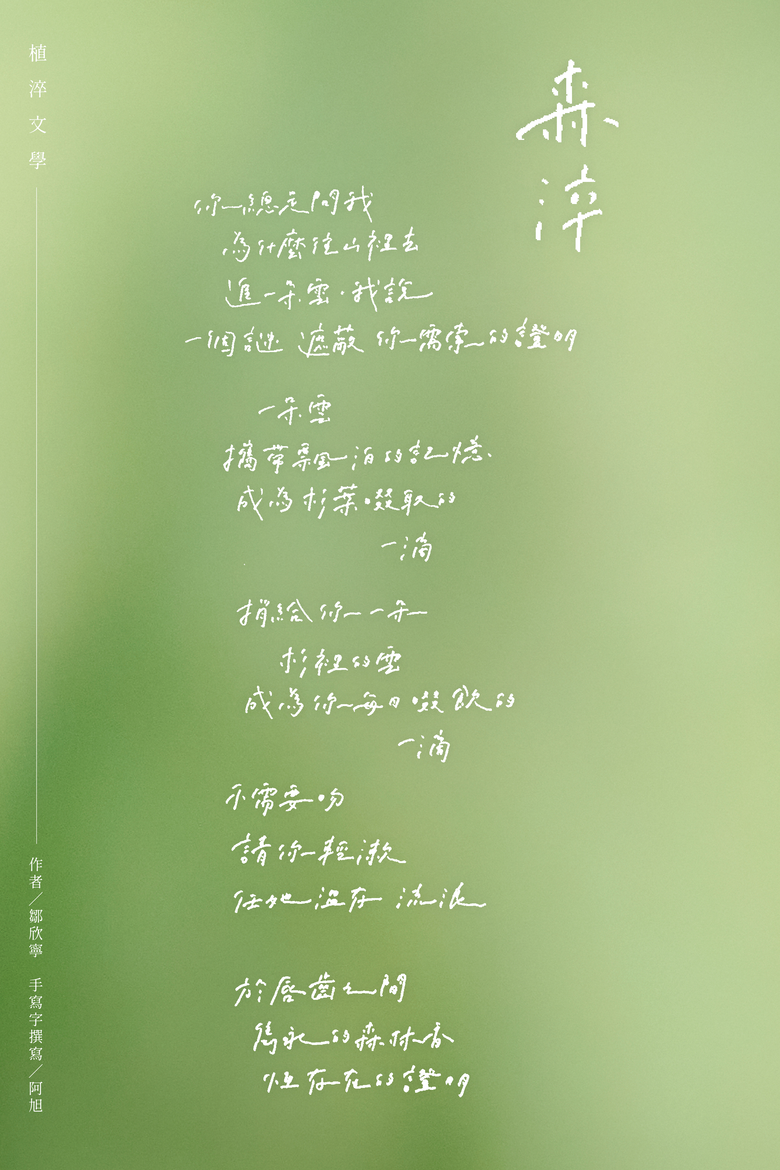 植淬文學
森淬
你總是問我
為什麼往山裡去
進一朵雲．我說
一個謎 遮蔽 你需索的證明
一朵雲
攜帶飄泊的記憶
成為杉葉啜取的
一滴
捎給你一朵
杉裡的雲
成為你每日啜飲的
一滴
不需要吻
請你輕漱
任他溫存 流浪
於唇齒之間
雋永的森林香
恆存在的證明
作者／鄒欣寧 手寫字撰寫／阿旭